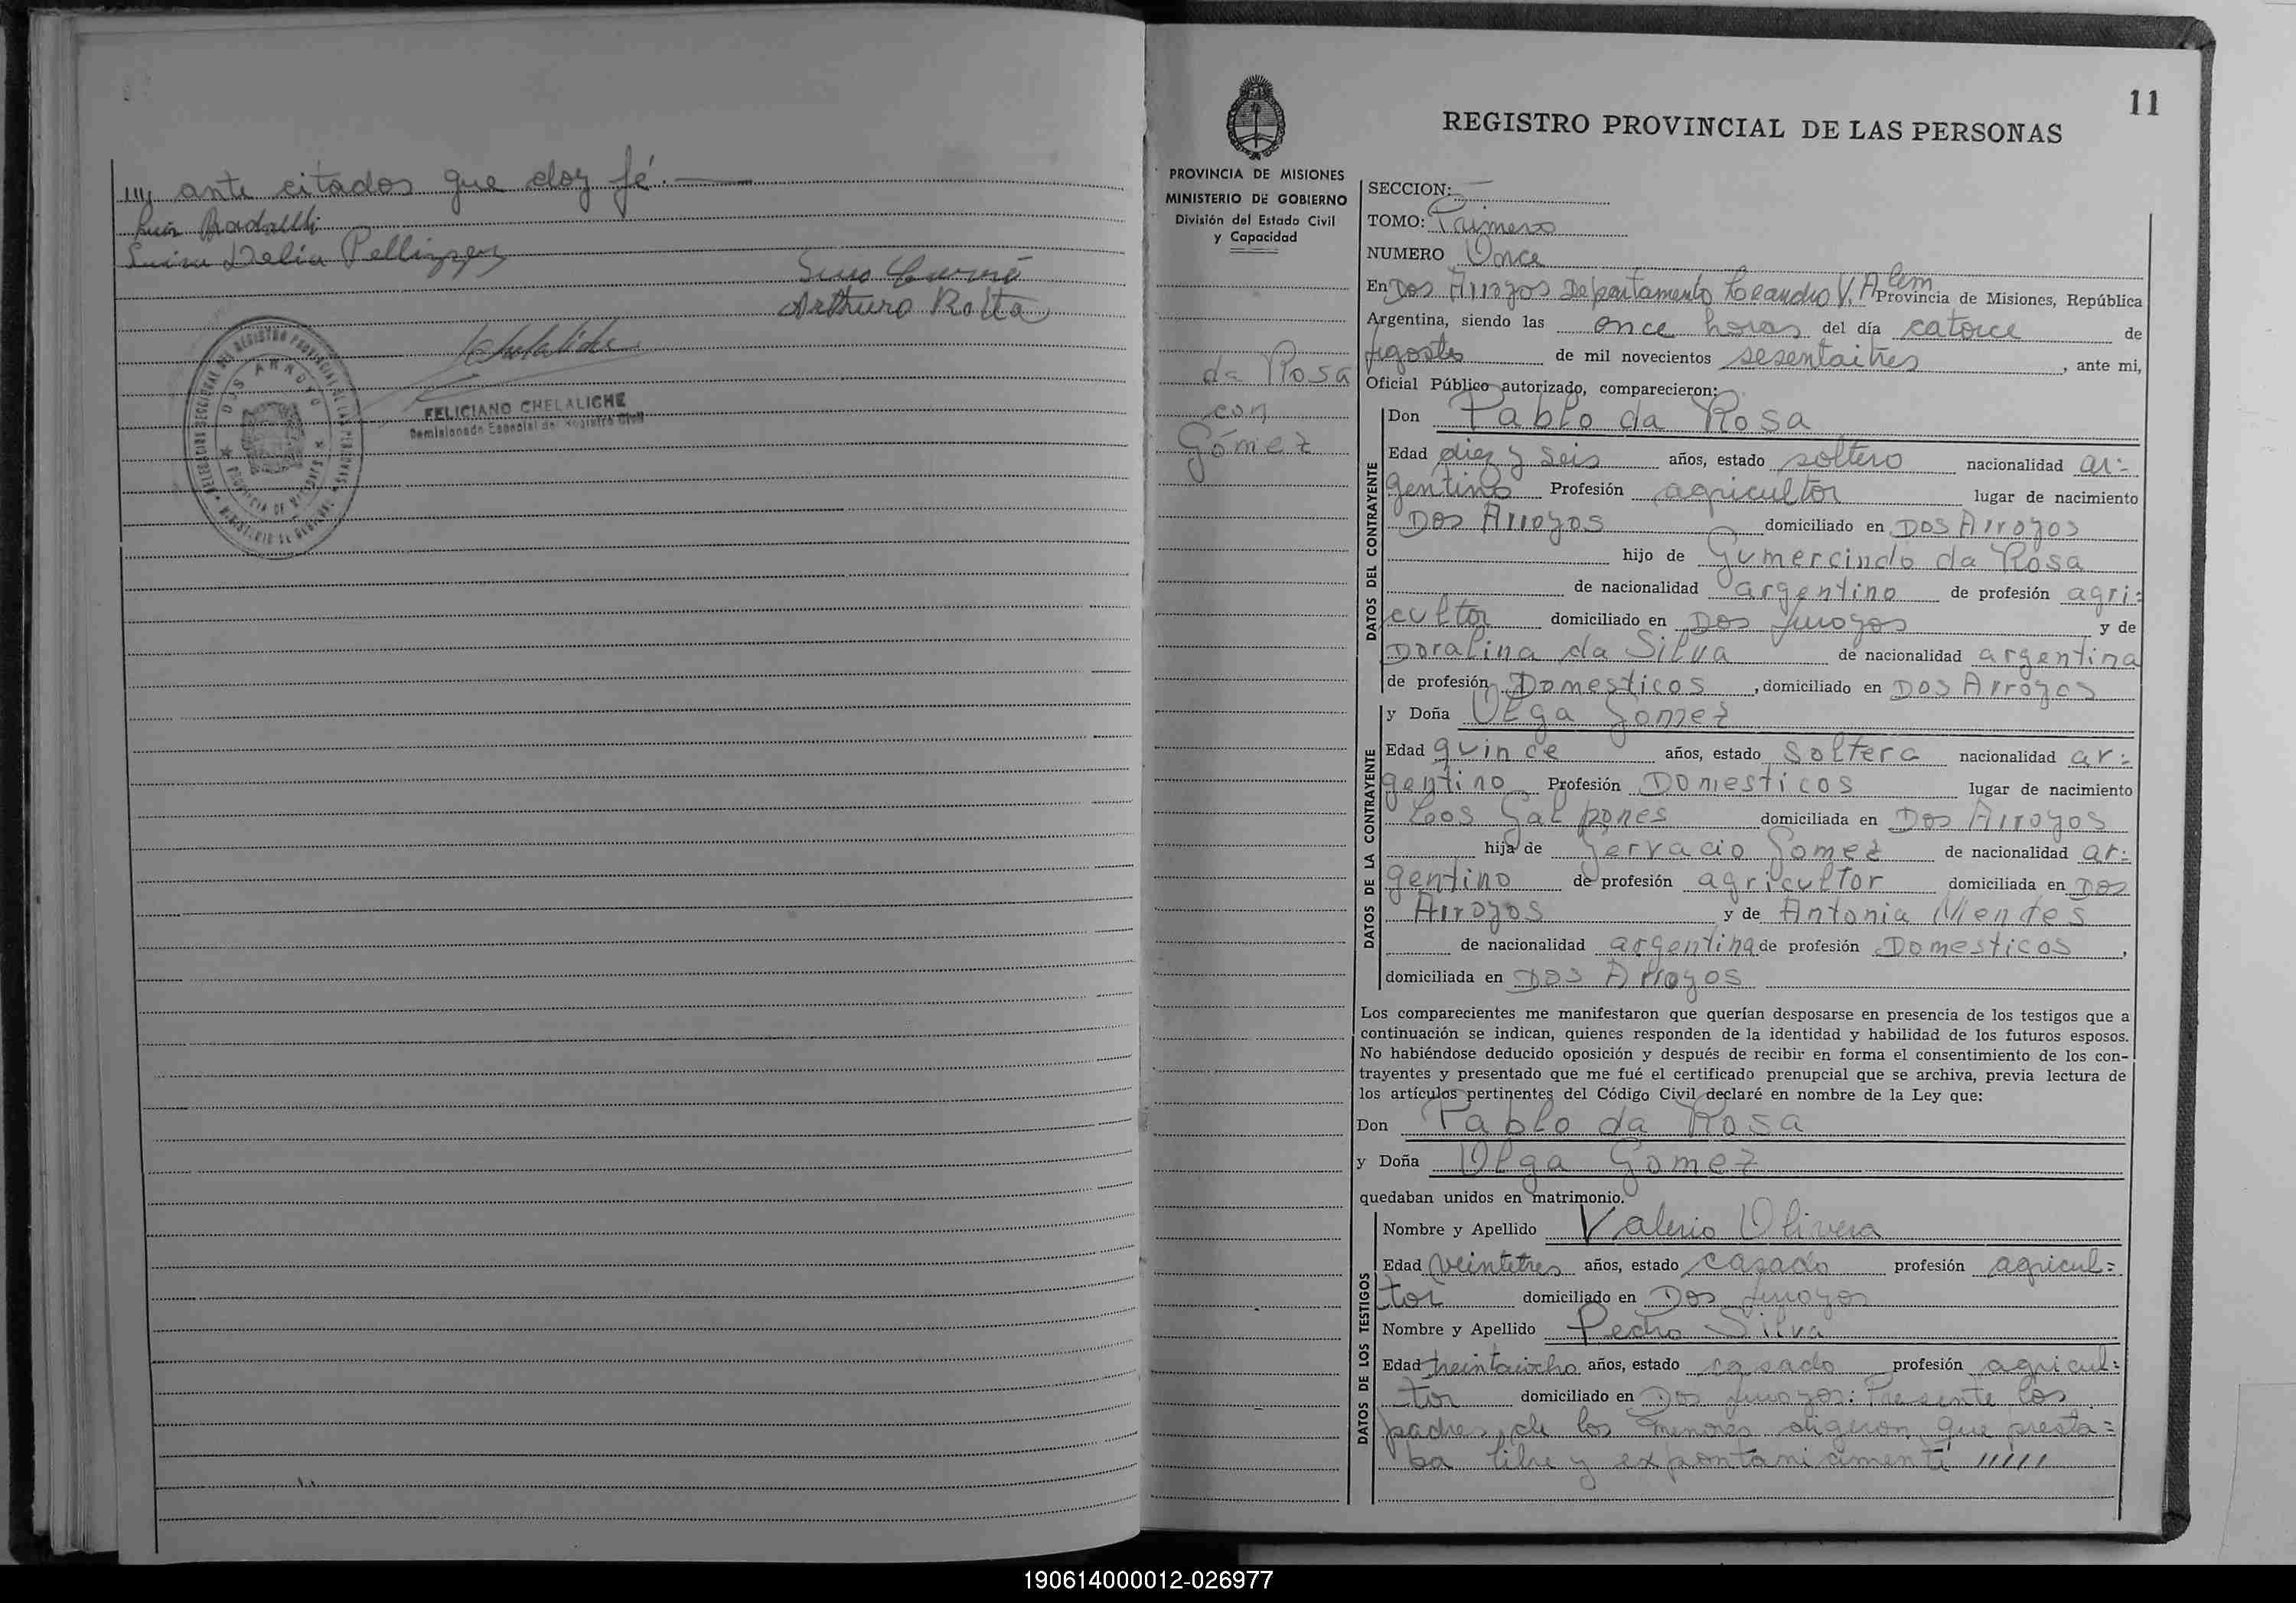 ante citados que doy fé.
Luisa Delia
Arthuro Rotta
FELICIANO CHELALICHE
Comisionado Especial del Registro Civil
DOS ARROYOS
PROVINCIA DE MISIONES
11
REGISTRO PROVINCIAL DE LAS PERSONAS
PROVINCIA DE MISIONES
MINISTERIO DE GOBIERNO
División del Estado Civil
y Capacidad
da Rosa
con
Gómez
SECCION:
TOMO: Primero
NUMERO Once
En Dos Arroyos Departamento Leandro V. Alem Provincia de Misiones, República
Argentina, siendo las once horas del día catorce de
Agosto de mil novecientos sesentaitres, ante mi,
Oficial Público autorizado, comparecieron:
DATOS DEL CONTRAYENTE
Don Pablo da Rosa
Edad diez y seis años, estado soltero nacionalidad ar=
gentino Profesión agricultor lugar de nacimiento
Dos Arroyos domiciliado en Dos Arroyos
hijo de Gumercindo da Rosa
de nacionalidad argentino de profesión agri=
cultor domiciliado en Dos Arroyos y de
Doralina da Silva de nacionalidad argentina
de profesión Domesticos, domiciliado en Dos Arroyos
DATOS DE LA CONTRAYENTE
y Doña Olga Gomez
Edad quince años, estado soltera nacionalidad ar=
gentino Profesión Domesticos lugar de nacimiento
Los Galpones domiciliada en Dos Arroyos
hija de Gervacio Gomez de nacionalidad ar=
gentino de profesión agricultor domiciliada en Dos
Arroyos y de Antonia Mendes
de nacionalidad argentina de profesión Domesticos,
domiciliada en Dos Arroyos
Los comparecientes me manifestaron que querían desposarse en presencia de los testigos que a
continuación se indican, quienes responden de la identidad y habilidad de los futuros esposos.
No habiéndose deducido oposición y después de recibir en forma el consentimiento de los con-
trayentes y presentado que me fué el certificado prenupcial que se archiva, previa lectura de
los artículos pertinentes del Código Civil declaré en nombre de la Ley que:
Don Pablo da Rosa
y Doña Olga Gomez
quedaban unidos en matrimonio.
DATOS DE LOS TESTIGOS
Nombre y Apellido Valerio Olivera
Edad veintetres años, estado casado profesión agricul=
tor domiciliado en Dos Arroyos
Nombre y Apellido Pedro Silva
Edad treintaiocho años, estado casado profesión agricul=
tor domiciliado en Dos Arroyos: Presente los
padres de los menores digeron que presta=
ba libre y expontaniamente /////
190614000012-026977